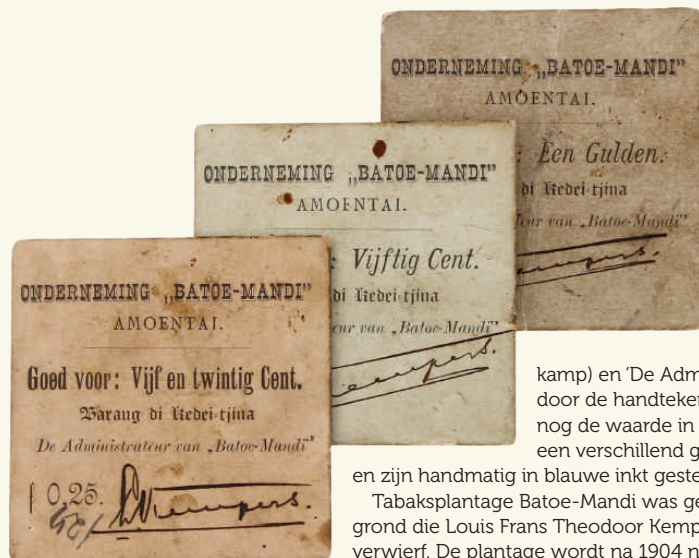 ONDERNEMING „BATOE-MANDI”
AMOENTAI.
: Een Gulden.
di Kedei-tjina
teur van „Batoe-Mandi”
ONDERNEMING „BATOE-MANDI”
AMOENTAI.
: Vijftig Cent.
di Kedei-tjina
teur van „Batoe-Mandi”
Kempers.
ONDERNEMING „BATOE-MANDI”
AMOENTAI.
Goed voor: Vijf en twintig Cent.
Barang di Kedei-tjina
De Administrateur van „Batoe-Mandi”
f 0,25.
Kempers.
kamp) en ‘De Adm
door de handteken
nog de waarde in
een verschillend g
en zijn handmatig in blauwe inkt geste
Tabaksplantage Batoe-Mandi was ge
grond die Louis Frans Theodoor Kemp
verwierf. De plantage wordt na 1904 n